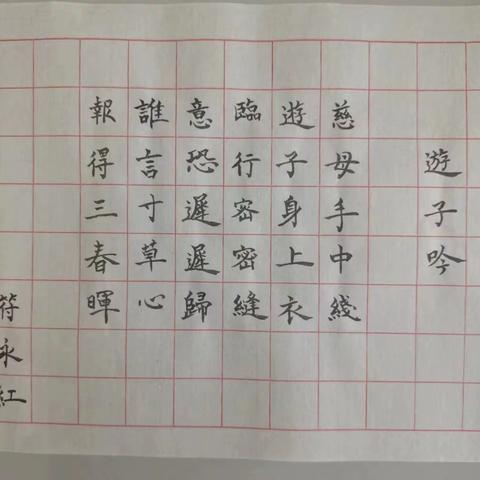 遊子吟
慈母手中綫
遊子身上衣
臨行密密縫
意恐遲遲歸
誰言寸草心
報得三春暉
符永紅